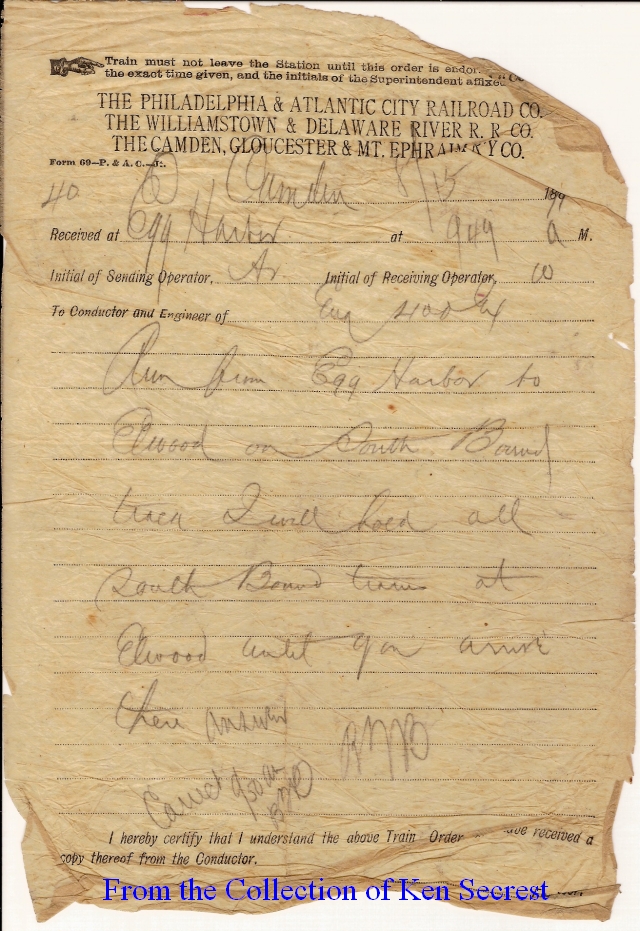 Train must not leave the Station until this order is endor
the exact time given, and the initials of the Superintendent affixed
THE PHILADELPHIA & ATLANTIC CITY RAILROAD CO.
THE WILLIAMSTOWN & DELAWARE RIVER R. R. CO.
THE CAMDEN, GLOUCESTER & MT. EPHRAIM Y CO.
Form 69—P. & A. C.—J.
40 Camden 8/15 189
Received at Egg Harbor at 949 a M.
Initial of Sending Operator, Ar Initial of Receiving Operator, W
To Conductor and Engineer of Eng 400
Run from Egg Harbor to
Elwood on South Bound
track I will hold all
South Bound trains at
Elwood until you arrive
there answer
Correct 950 am
I hereby certify that I understand the above Train Order have received a
copy thereof from the Conductor.
From the Collection of Ken Secrest